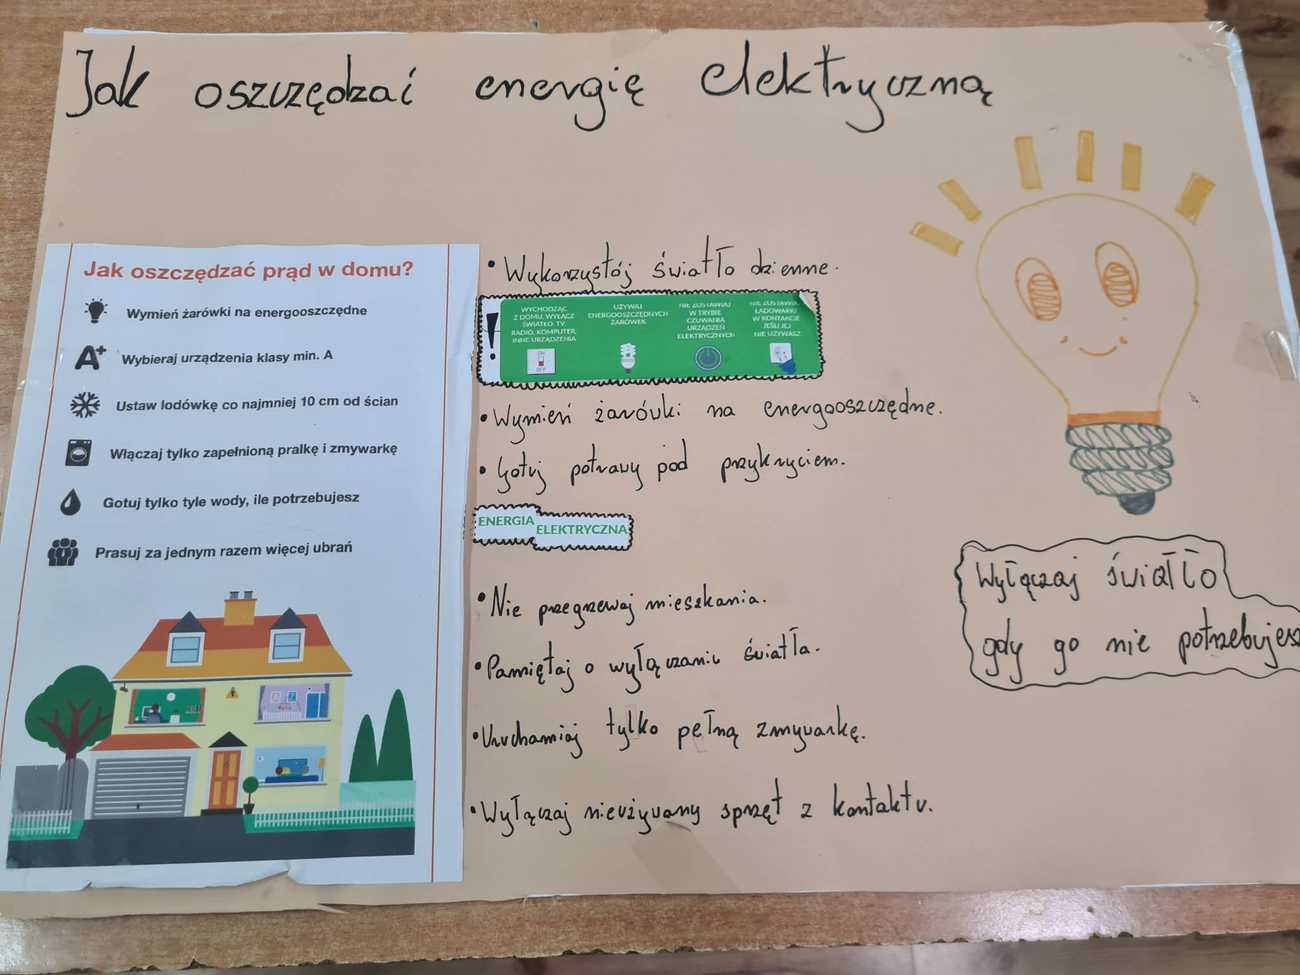 Jak oszczędzać energię elektryczną
Jak oszczędzać prąd w domu?
Wymień żarówki na energooszczędne
A+
Wybieraj urządzenia klasy min. A
Ustaw lodówkę co najmniej 10 cm od ścian
Włączaj tylko zapełnioną pralkę i zmywarkę
Gotuj tylko tyle wody, ile potrzebujesz
Prasuj za jednym razem więcej ubrań
• Wykorzystój światło dzienne.
!
WYCHODZĄC
Z DOMU, WYŁĄCZ
ŚWIATŁO, TV,
RADIO, KOMPUTER,
INNE URZĄDZENIA
UŻYWAJ
ENERGOOSZCZĘDNYCH
ŻARÓWEK
NIE ZOSTAWIAJ
W TRYBIE
CZUWANIA
URZĄDZEŃ
ELEKTRYCZNYCH
NIE ZOSTAWIAJ
ŁADOWARKI
W KONTAKCIE
JEŚLI JEJ
NIE UŻYWASZ
• Wymień żarówki na energooszczędne.
• Gotuj potrawy pod przykryciem.
ENERGIA
ELEKTRYCZNA
• Nie przegrzewaj mieszkania.
• Pamiętaj o wyłączaniu światła.
• Uruchamiaj tylko pełną zmywarkę.
• Wyłączaj nieużywany sprzęt z kontaktu.
Wyłączaj światło
gdy go nie potrzebujesz